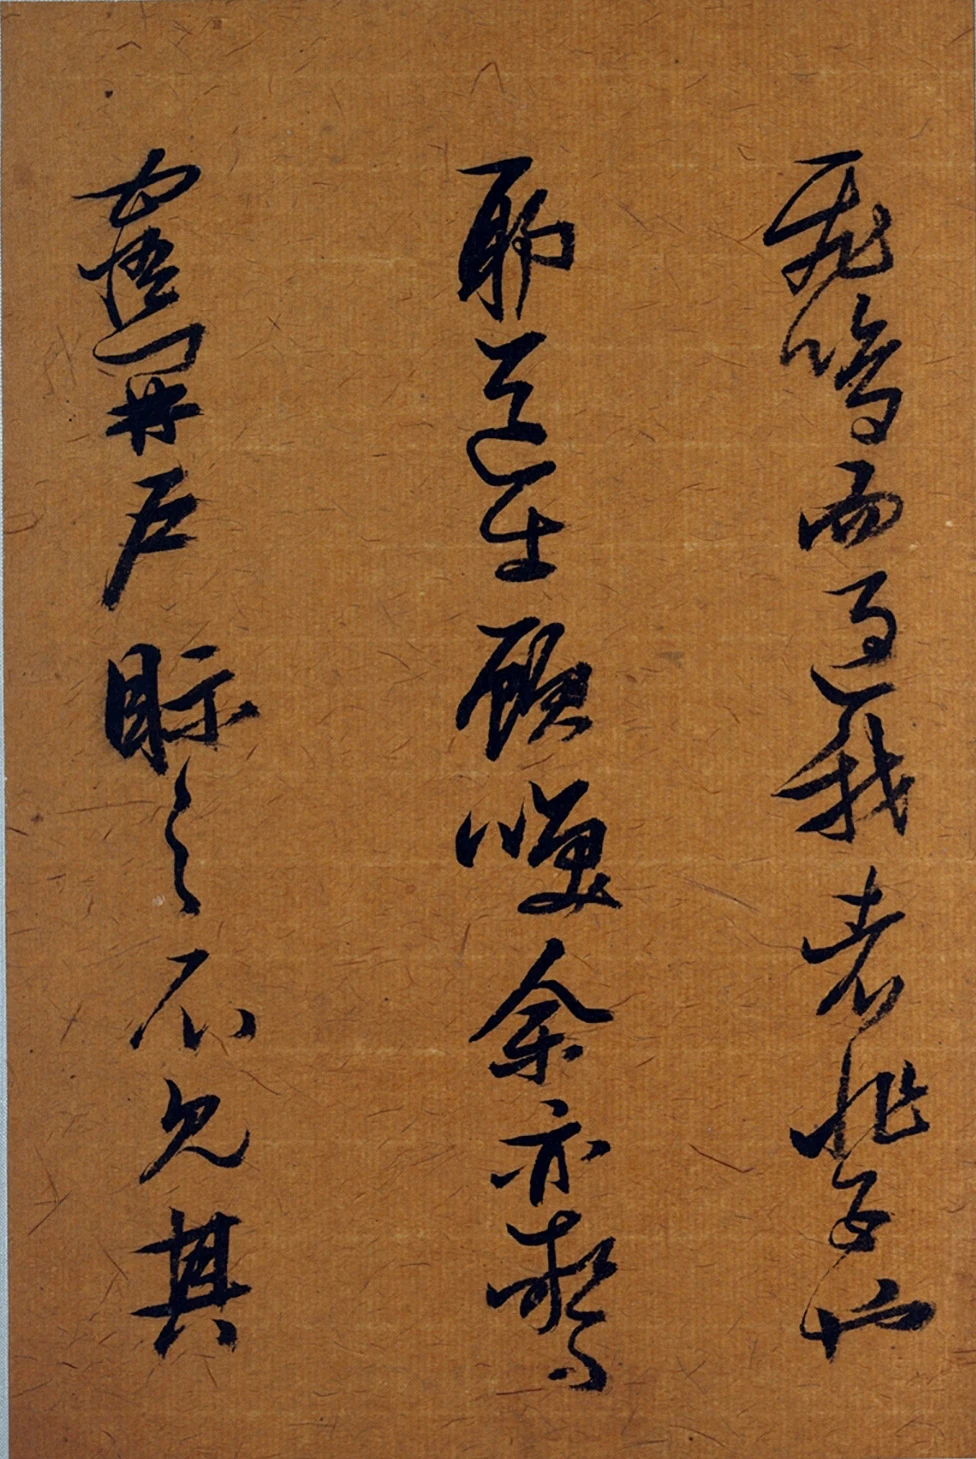 飛鳴而過我者非子也
耶道士顧笑余亦驚
寤開戶眎之不見其